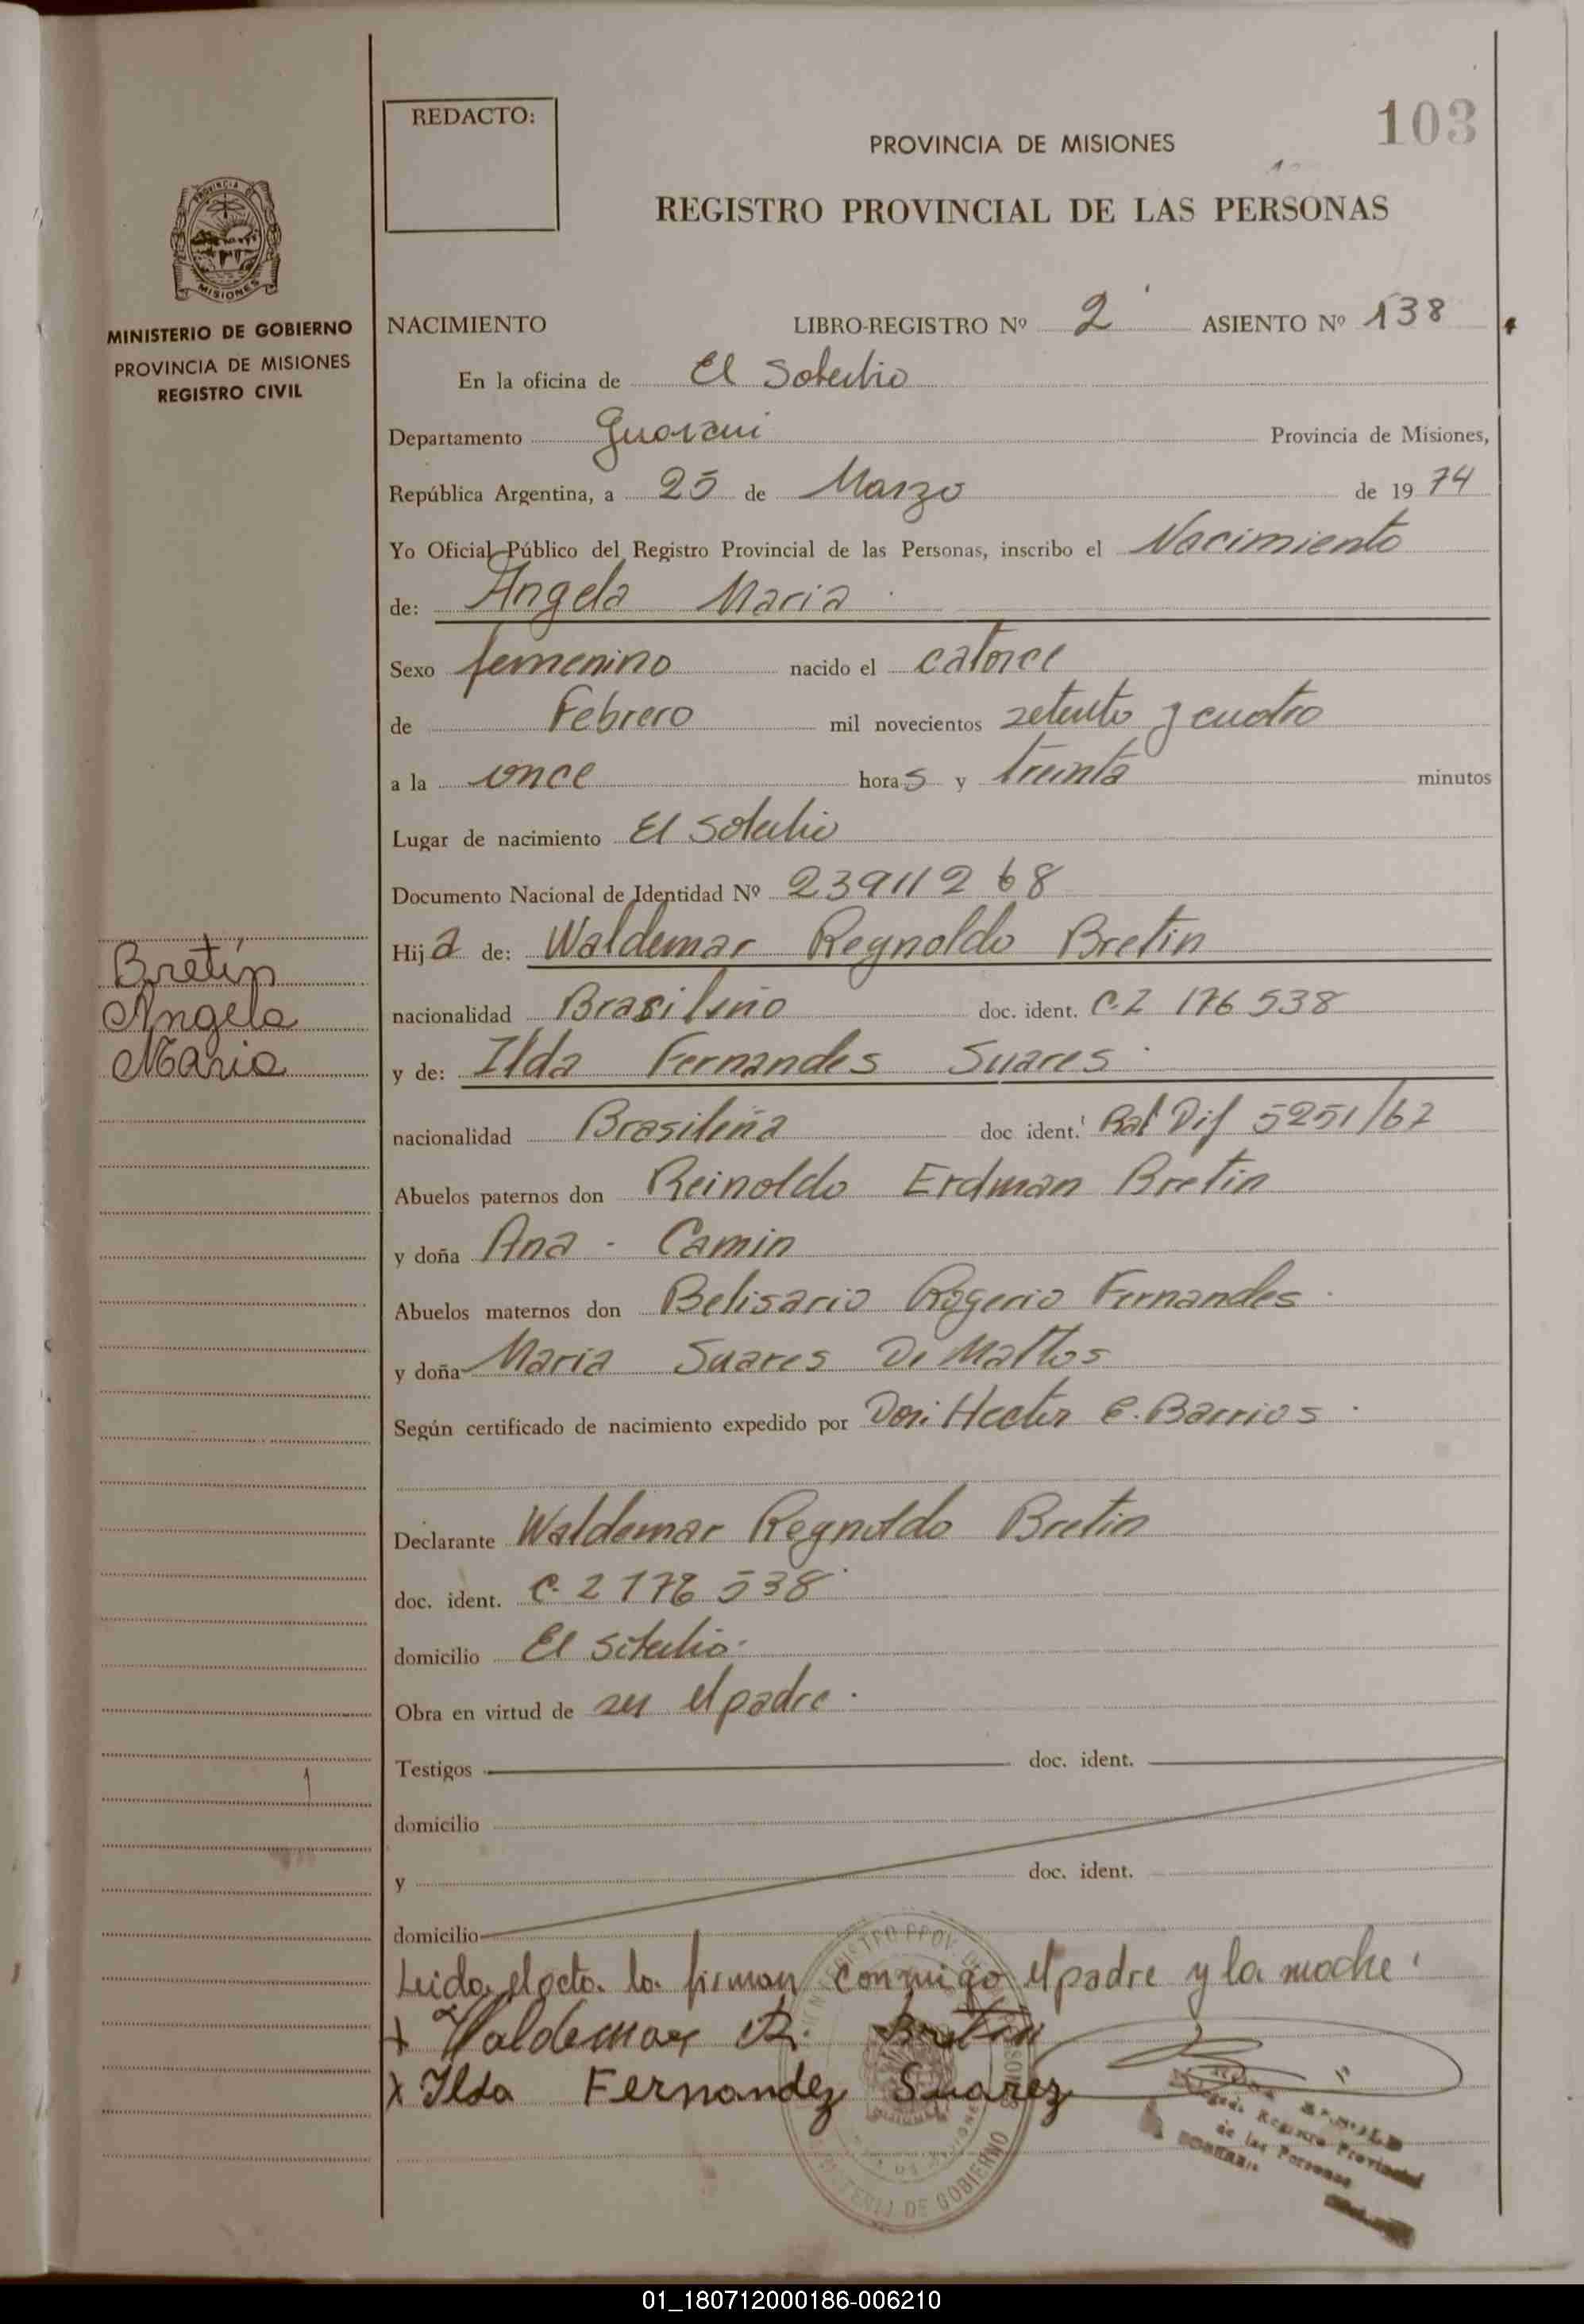 103
REDACTO:
PROVINCIA DE MISIONES
REGISTRO PROVINCIAL DE LAS PERSONAS
MINISTERIO DE GOBIERNO
PROVINCIA DE MISIONES
REGISTRO CIVIL
NACIMIENTO LIBRO-REGISTRO Nº 2 ASIENTO Nº 138
En la oficina de El Soberbio
Departamento Guarani Provincia de Misiones,
República Argentina, a 25 de Marzo de 19 74
Yo Oficial Público del Registro Provincial de las Personas, inscribo el Nacimiento
de: Angela Maria
Sexo femenino nacido el catorce
de Febrero mil novecientos setenta y cuatro
a la once horas y treinta minutos
Lugar de nacimiento El Soberbio
Documento Nacional de Identidad Nº 23911268
Bretín
Angela
Maria
Hija de: Waldemar Reynoldo Bretin
nacionalidad Brasileño doc. ident. C.I 176538
y de: Ilda Fernandes Suares
nacionalidad Brasileña doc ident. Dif 5251/62
Abuelos paternos don Reinoldo Erdman Bretin
y doña Ana - Camin
Abuelos maternos don Belisario Rogerio Fernandes
y doña Maria Suares De Mattos
Según certificado de nacimiento expedido por Don Hector E. Barrios
Declarante Waldemar Reynoldo Bretin
doc. ident. C. I 176538
domicilio El Soberbio.
Obra en virtud de ser el padre.
Testigos doc. ident.
domicilio
y doc. ident.
domicilio
Leida el acta la firman conmigo el padre y la madre.
x Valdemar R. Bretin
x Ilda Fernandez Suarez
Registro Provincial
de las Personas
MINISTERIO DE GOBIERNO
01_180712000186-006210